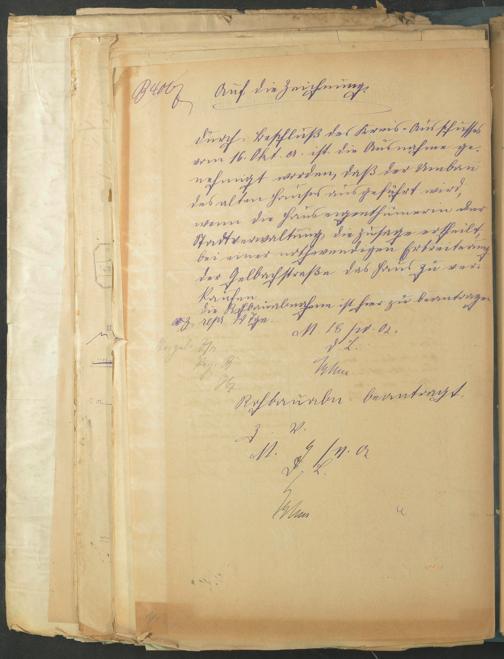 Auf die Zeichnung.
Durch Beschluß des Kreis-Ausschusses
vom 16. Okt. a. ist die Ausnahme ge-
nehmigt worden, daß der Umbau
des alten Hauses ausgeführt wird,
wenn die Hauseigenthümerin der
Stadtverwaltung die Zusage ertheilt,
bei einer nothwendigen Erbreiterung
der Gelbachstraße das Haus zu ver-
kaufen.
Die Rohbauabnahme ist hier zu beantragen
M. 18
D. L.
Rohbauabn. beantragt.
Z. V.
M. 9
D. L.